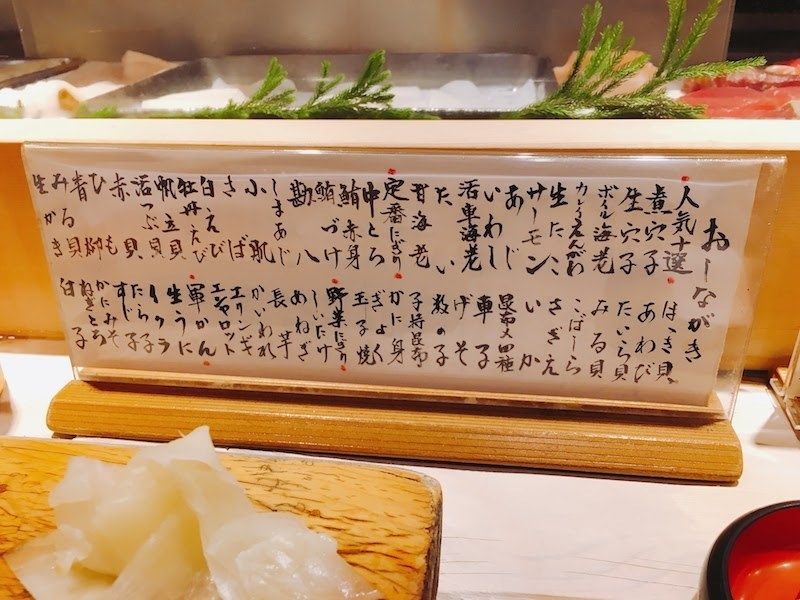 おしながき
人気十選
煮穴子
生穴子
ボイル海老
カレイえんがわ
生たこ
サーモン
あじ
いわし
活車海老
たい
甘海老
定番にぎり
中とろ
鮪赤身
鮪づけ
勘八
しまあじ
小肌
さば
白えび
牡丹えび
帆立貝
活つぶ貝
赤貝
ひも
青柳
みる貝
生かき
ほっき貝
あわび
たいら貝
みる貝
こばしら
さざえ
いか
昆布〆四種
げそ
数の子
子持昆布
かに身
ぎょく
玉子焼
野菜にぎり
しいたけ
めねぎ
長芋
かいわれ
エリンギ
エシャロット
軍かん
生うに
イクラ
たら子
すじ子
かにみそ
ねぎとろ
白子